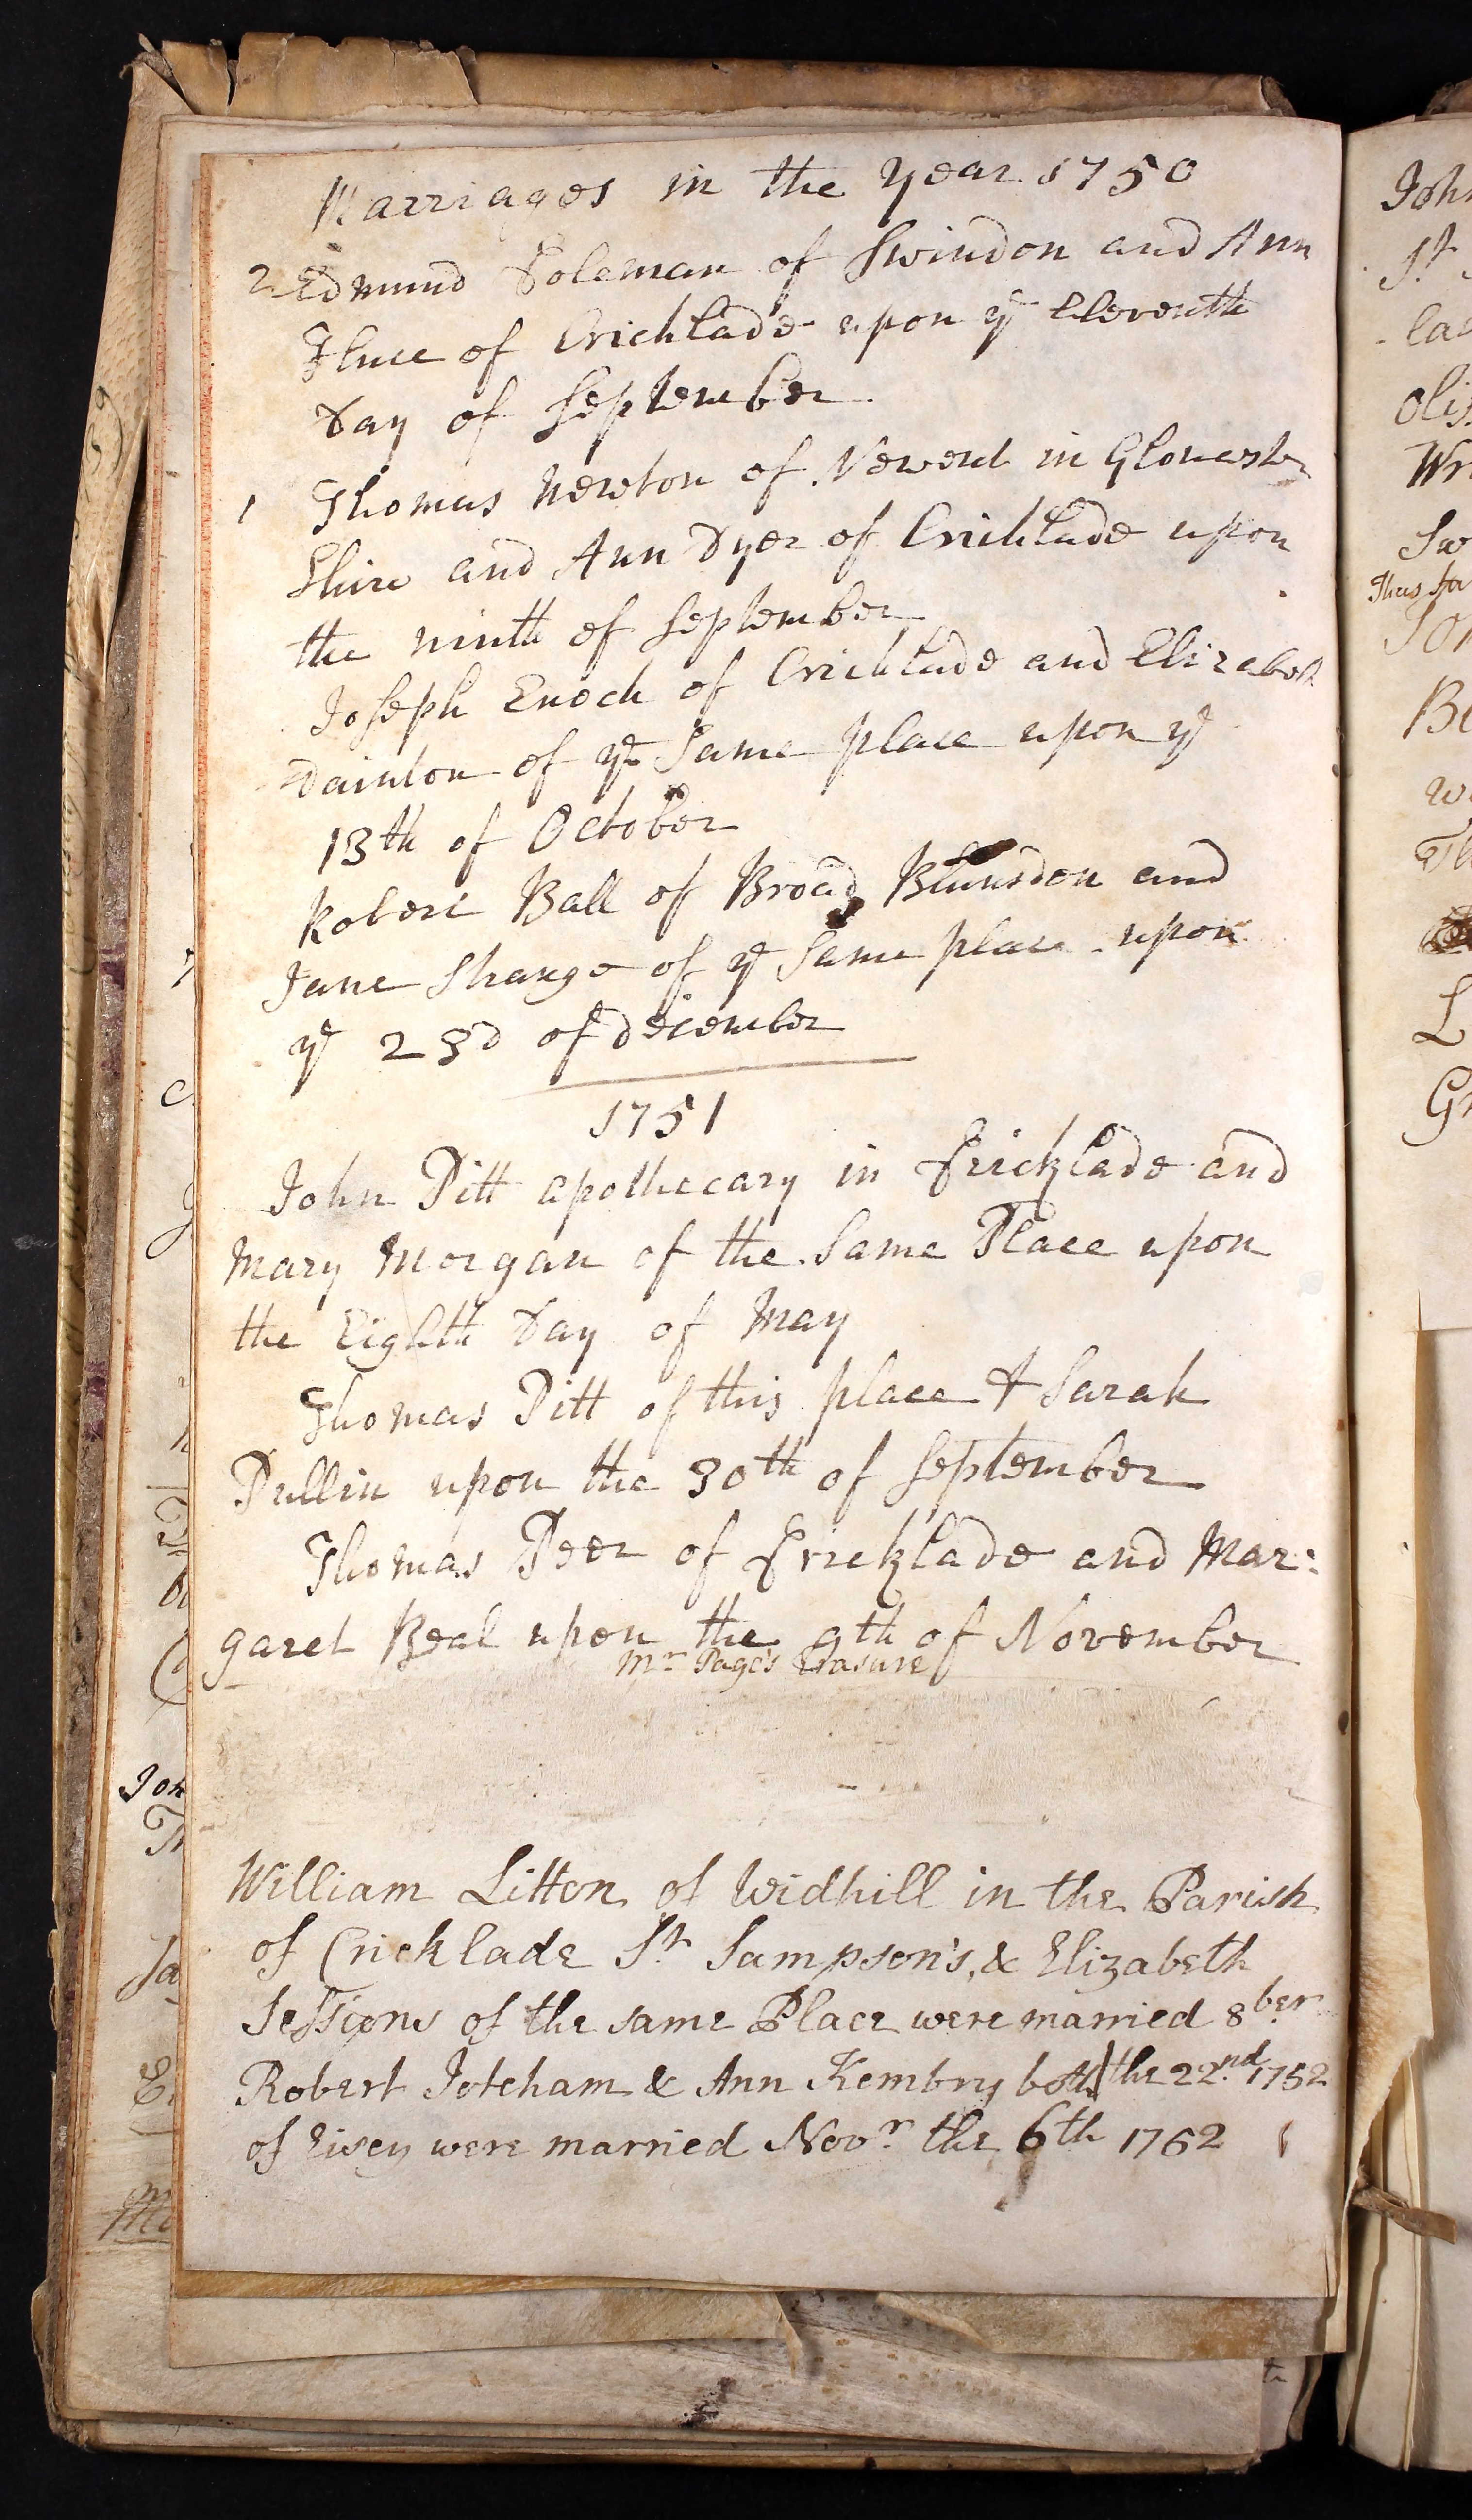 Marriages in the year 1750
2 Edmund Coleman of Swindon and Ann
Fluce of Cricklade upon ye Eleventh
Day of September
1 Thomas Newton of Newent in Glocester
Shire and Ann Dyer of Cricklade upon
the ninth of September
Joseph Enoch of Cricklade and Elizabeth
Dainton of ye Same place upon ye
13th of October
Robert Ball of Broad Blunsdon and
Jane Strange of ye Same place upon
ye 23d of december
1751
John Pitt apothecary in Cricklade and
Mary Morgan of the Same Place upon
the Eighth Day of May
Thomas Pitt of this place & Sarah
Pullin upon the 30th of September
Thomas Peer of Cricklade and Mar:
garet Beal upon the 9th of November
Mr Page's Erasure
William Litton of Widhill in the Parish
of Cricklade St Sampson's, & Elizabeth
Sessions of the same Place were married 8ber
Robert Jotcham & Ann Kembry both the 22nd 1752
of Eisey were married Novr the 6th 1752